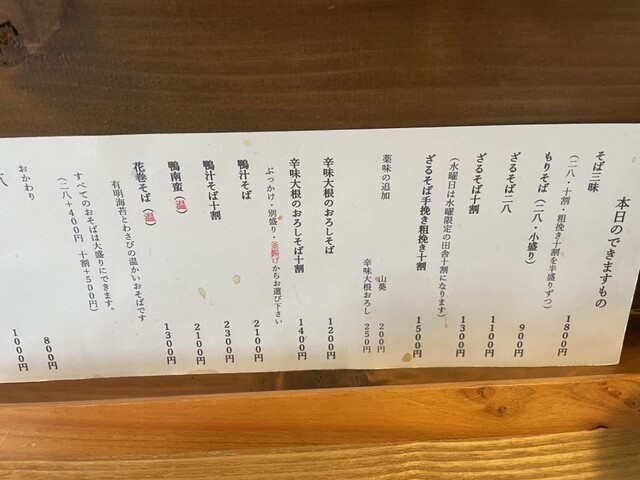 本日のできますもの
そば三昧 1800円
(二八・十割・粗挽き十割を半盛りずつ)
もりそば(二八・小盛り) 900円
ざるそば二八 1100円
ざるそば十割 1300円
(水曜日は水曜限定の田舎十割になります)
ざるそば手挽き粗挽き十割 1500円
薬味の追加 山葵 200円
辛味大根おろし 250円
辛味大根のおろしそば 1200円
辛味大根のおろしそば十割 1400円
ぶっかけ・別盛り・釜揚げからお選び下さい
鴨汁そば 2100円
鴨汁そば十割 2300円
鴨南蛮(温) 2100円
花巻そば(温) 1300円
有明海苔とわさびの温かいおそばです
すべてのおそばは大盛りにできます。
(二八+400円 十割+500円)
おかわり 800円
1000円